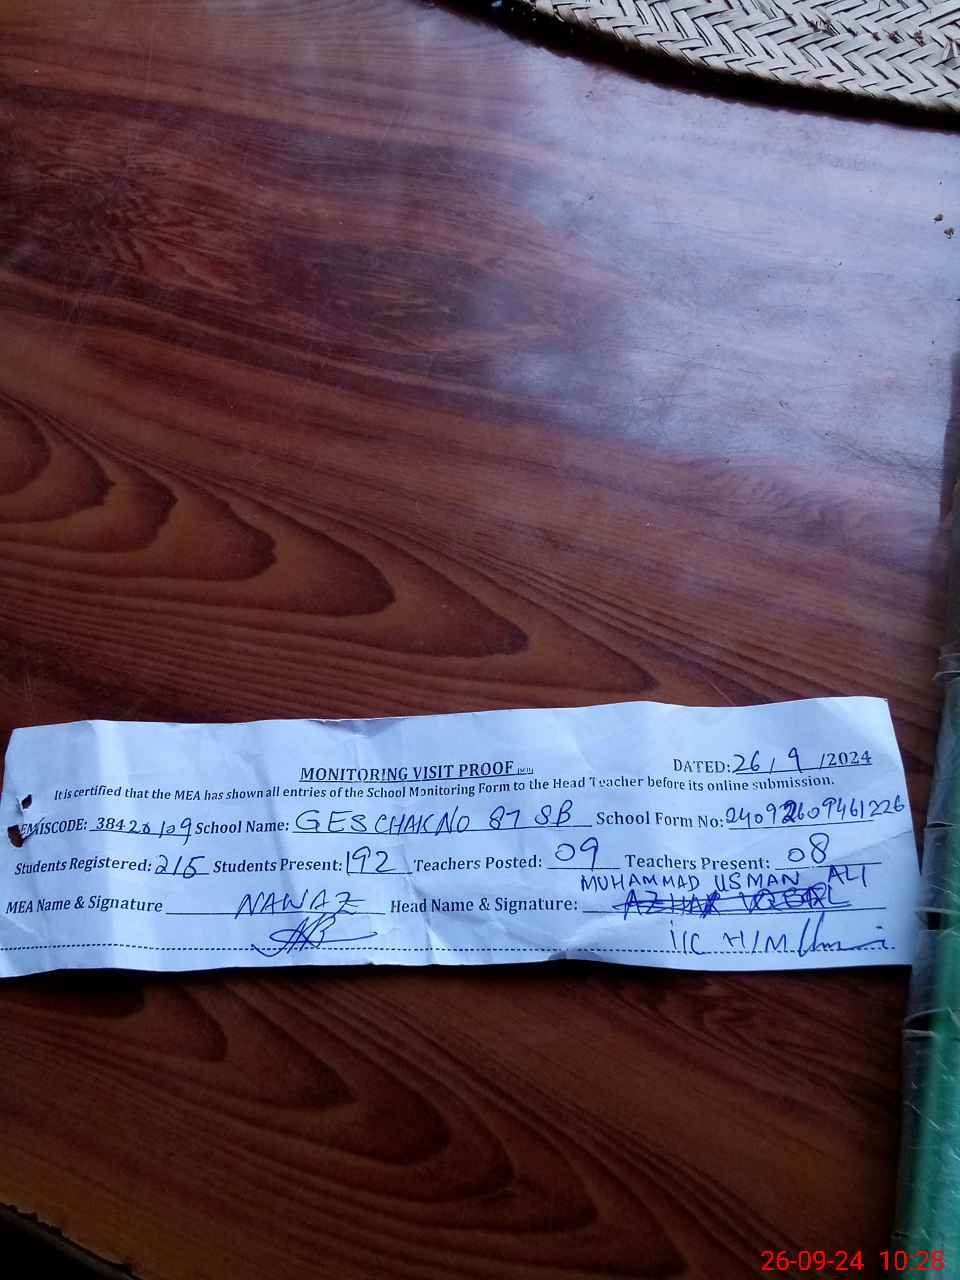 MONITORING VISIT PROOF
DATED: 26/9/2024
It is certified that the MEA has shown all entries of the School Monitoring Form to the Head Teacher before its online submission.
EMISCODE: 38420109 School Name: GES CHAK NO 87 SB School Form No: 24092609461226
Students Registered: 215 Students Present: 192 Teachers Posted: 09 Teachers Present: 08
MUHAMMAD USMAN ALI
MEA Name & Signature NAWAZ Head Name & Signature: AZHAR IQBAL
I/C H/M
26-09-24 10:28